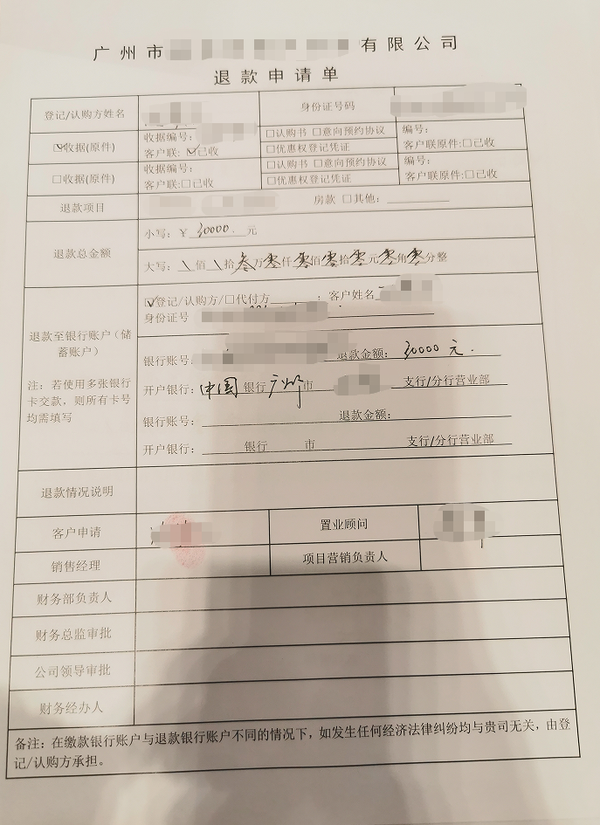 广州市 有限公司
退款申请单
登记/认购方姓名 身份证号码
☑收据(原件) 收据编号: □认购书 □意向预约协议 编号:
客户联:☑已收 □优惠权登记凭证 客户联原件:□已收
□收据(原件) 收据编号: □认购书 □意向预约协议 编号:
客户联:□已收 □优惠权登记凭证 客户联原件:□已收
退款项目 房款 □其他:
退款总金额 小写:￥ 30000 元
大写: \ 佰 \ 拾 叁 万 零 仟 零 佰 零 拾 零 元 零 角 零 分整
退款至银行账户(储
蓄账户)
注: 若使用多张银行
卡交款, 则所有卡号
均需填写
☑登记/认购方/□代付方 ; 客户姓名
身份证号
银行账号: 退款金额: 30000 元.
开户银行: 中国 银行 广州 市 支行/分行营业部
银行账号: 退款金额:
开户银行: 银行 市 支行/分行营业部
退款情况说明
客户申请 置业顾问
销售经理 项目营销负责人
财务部负责人
财务总监审批
公司领导审批
财务经办人
备注: 在缴款银行账户与退款银行账户不同的情况下, 如发生任何经济法律纠纷均与贵司无关, 由登
记/认购方承担。